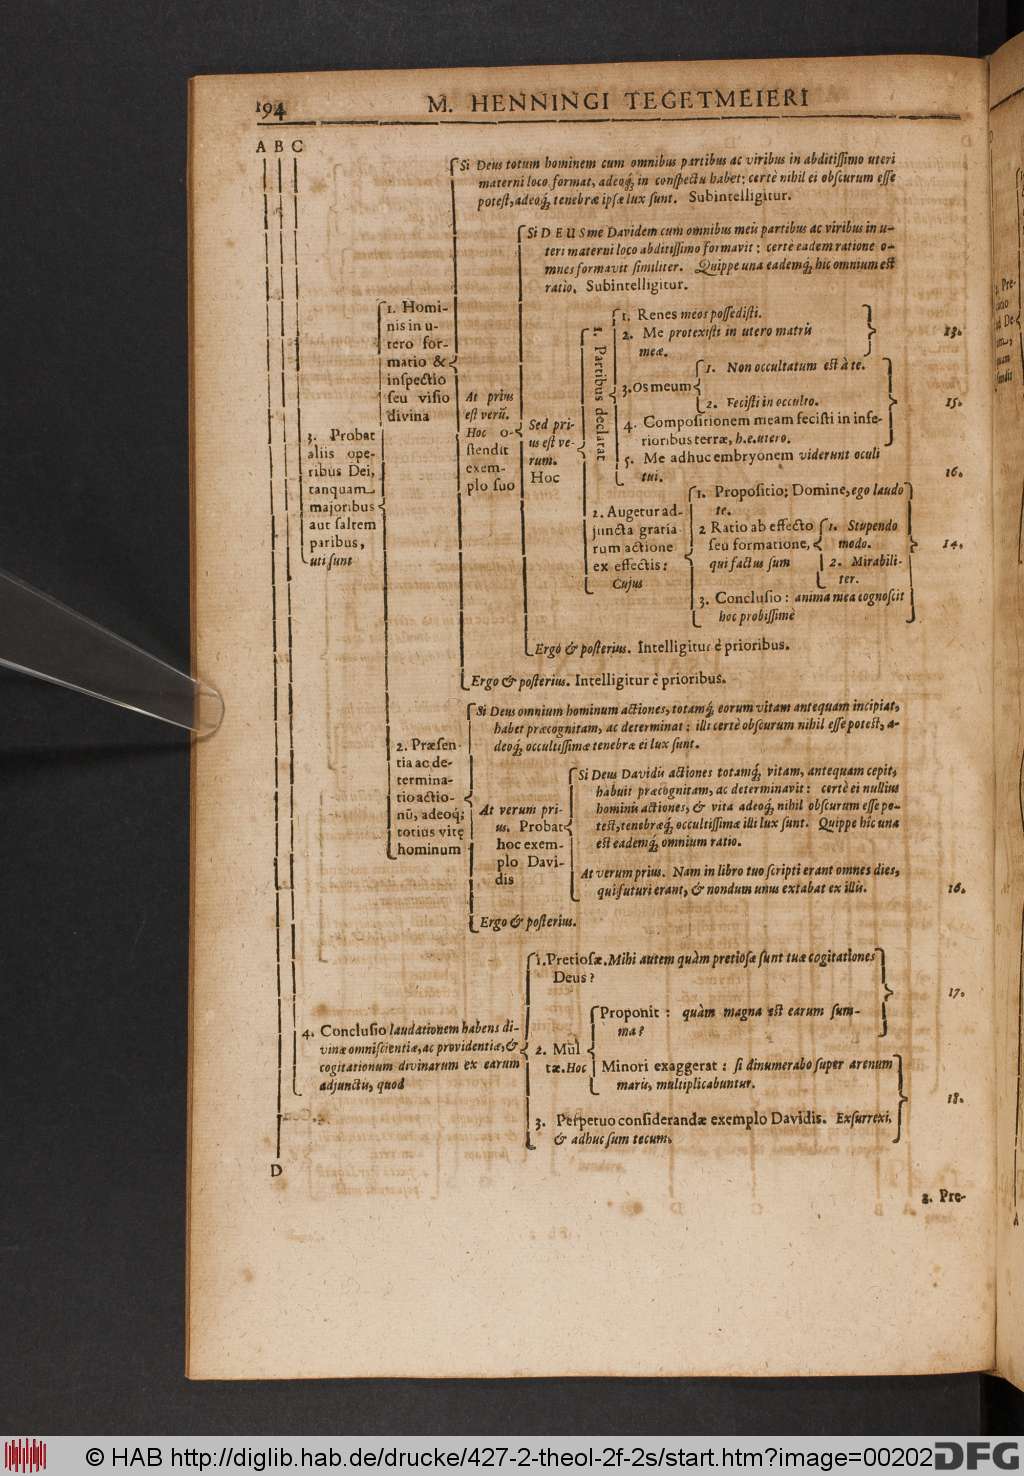 194
M. HENNINGI TEGETMEIERI
A B C
Si Deus totum hominem cum omnibus partibus ac viribus in abditiſſimo uteri
materni loco format, adeoq́; in conſpectu habet: certè nihil ei obſcurum eſſe
poteſt, adeoq́; tenebræ ipſæ lux ſunt. Subintelligitur.
Si DEUS me Davidem cum omnibus meis partibus ac viribus in u-
teri materni loco abditiſſimo formavit: certè eadem ratione o-
mnes formavit ſimiliter. Quippe una eademq́; hic omnium eſt
ratio. Subintelligitur.
1. Homi-
nis in u-
tero for-
matio &
inſpectio
ſeu viſio
divina
1. Renes meos poſſediſti.
2. Me protexiſti in utero matris
meæ.
13.
1. Partibus declarat
3. Os meum
1. Non occultatum eſt à te.
2. Feciſti in occulto.
15.
4. Compoſitionem meam feciſti in infe-
rioribus terræ, h.e. utero.
5. Me adhuc embryonem viderunt oculi
tui.
16.
At prius
eſt verũ.
Hoc o-
ſtendit
exem-
plo ſuo
Sed pri-
us eſt ve-
rum.
Hoc
3. Probat
aliis ope-
ribus Dei,
tanquam
majoribus
aut ſaltem
paribus,
uti ſunt
2. Augetur ad-
juncta gratia-
rum actione
ex effectis:
Cujus
1. Propoſitio; Domine, ego laudo
te.
2 Ratio ab effecto
ſeu formatione,
qui factus ſum
1. Stupendo
modo.
2. Mirabili-
ter.
14.
3. Concluſio: anima mea cognoſcit
hoc probiſſimè
Ergo & poſterius. Intelligitur è prioribus.
Ergo & poſterius. Intelligitur è prioribus.
Si Deus omnium hominum actiones, totamq́; eorum vitam antequam incipiat,
habet præcognitam, ac determinat: illi certè obſcurum nihil eſſe poteſt, a-
deoq́; occultiſſimæ tenebræ ei lux ſunt.
2. Præſen-
tia ac de-
termina-
tio actio-
nũ, adeoq́;
totius vitę
hominum
At verum pri-
us. Probat
hoc exem-
plo Davi-
dis
Si Deus Davidis actiones totamq́; vitam, antequam cepit,
habuit præcognitam, ac determinavit: certè ei nullius
hominis actiones, & vita adeoq́; nihil obſcurum eſſe po-
teſt, tenebræq́; occultiſſimæ illi lux ſunt. Quippe hîc una
eſt eademq́; omnium ratio.
At verum prius. Nam in libro tuo ſcripti erant omnes dies,
qui futuri erant, & nondum unus extabat ex illis.
16.
Ergo & poſterius.
4. Concluſio laudationem habens di-
vinæ omniſcientiæ, ac providentiæ, &
cogitationum divinarum ex earum
adjunctis, quod
1. Pretioſæ. Mihi autem quàm pretioſæ ſunt tuæ cogitationes
Deus?
2. Mul
tæ. Hoc
Proponit: quàm magna eſt earum ſum-
ma?
17.
Minori exaggerat: ſi dinumerabo ſuper arenum
maris, multiplicabuntur.
3. Perpetuo conſiderandæ exemplo Davidis. Exſurrexi,
& adhuc ſum tecum.
18.
D
2. Pre-
© HAB http://diglib.hab.de/drucke/427-2-theol-2f-2s/start.htm?image=00202
DFG